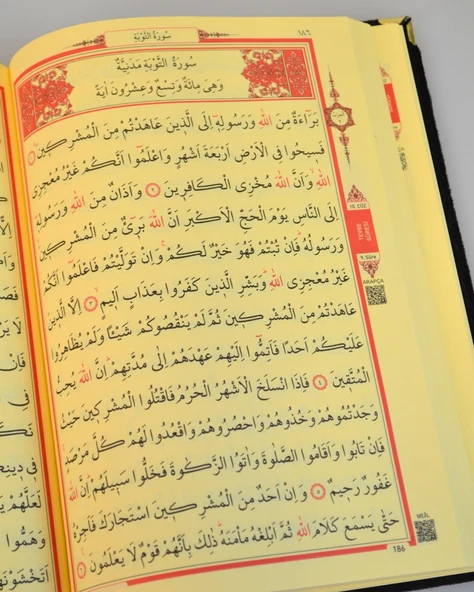 سُورَةُ التَّوْبَةِ
١٨٦
سُورَةُ التَّوْبَةِ مَدَنِيَّةٌ
وَهِىَ مِائَةٌ وَتِسْعٌ وَعِشْرُونَ اٰيَةً
بَرَٓاءَةٌ مِنَ اللّٰهِ وَرَسُولِهٖٓ اِلَى الَّذٖينَ عَاهَدْتُمْ مِنَ الْمُشْرِكٖينَ ١
فَسٖيحُوا فِى الْاَرْضِ اَرْبَعَةَ اَشْهُرٍ وَاعْلَمُٓوا اَنَّكُمْ غَيْرُ مُعْجِزِى
اللّٰهِ وَاَنَّ اللّٰهَ مُخْزِى الْكَافِرٖينَ ٢ وَاَذَانٌ مِنَ اللّٰهِ وَرَسُولِهٖٓ
اِلَى النَّاسِ يَوْمَ الْحَجِّ الْاَكْبَرِ اَنَّ اللّٰهَ بَرٖٓىءٌ مِنَ الْمُشْرِكٖينَ
وَرَسُولُهُ فَاِنْ تُبْتُمْ فَهُوَ خَيْرٌ لَكُمْ وَاِنْ تَوَلَّيْتُمْ فَاعْلَمُٓوا اَنَّكُمْ
غَيْرُ مُعْجِزِى اللّٰهِ وَبَشِّرِ الَّذٖينَ كَفَرُوا بِعَذَابٍ اَلٖيمٍ ٣ اِلَّا الَّذٖينَ
عَاهَدْتُمْ مِنَ الْمُشْرِكٖينَ ثُمَّ لَمْ يَنْقُصُوكُمْ شَيْـًٔا وَلَمْ يُظَاهِرُوا
عَلَيْكُمْ اَحَدًا فَاَتِمُّٓوا اِلَيْهِمْ عَهْدَهُمْ اِلٰى مُدَّتِهِمْ اِنَّ اللّٰهَ يُحِبُّ
الْمُتَّقٖينَ ٤ فَاِذَا انْسَلَخَ الْاَشْهُرُ الْحُرُمُ فَاقْتُلُوا الْمُشْرِكٖينَ حَيْثُ
وَجَدْتُمُوهُمْ وَخُذُوهُمْ وَاحْصُرُوهُمْ وَاقْعُدُوا لَهُمْ كُلَّ مَرْصَدٍ
فَاِنْ تَابُوا وَاَقَامُوا الصَّلٰوةَ وَاٰتَوُا الزَّكٰوةَ فَخَلُّوا سَبٖيلَهُمْ اِنَّ اللّٰهَ
غَفُورٌ رَحٖيمٌ ٥ وَاِنْ اَحَدٌ مِنَ الْمُشْرِكٖينَ اسْتَجَارَكَ فَاَجِرْهُ
حَتّٰى يَسْمَعَ كَلَامَ اللّٰهِ ثُمَّ اَبْلِغْهُ مَأْمَنَهُ ذٰلِكَ بِاَنَّهُمْ قَوْمٌ لَا يَعْلَمُونَ ٦
10. CÜZ
TEVBE
SÛRESİ
9. Sûre
ARAPÇA
MEÂL
186